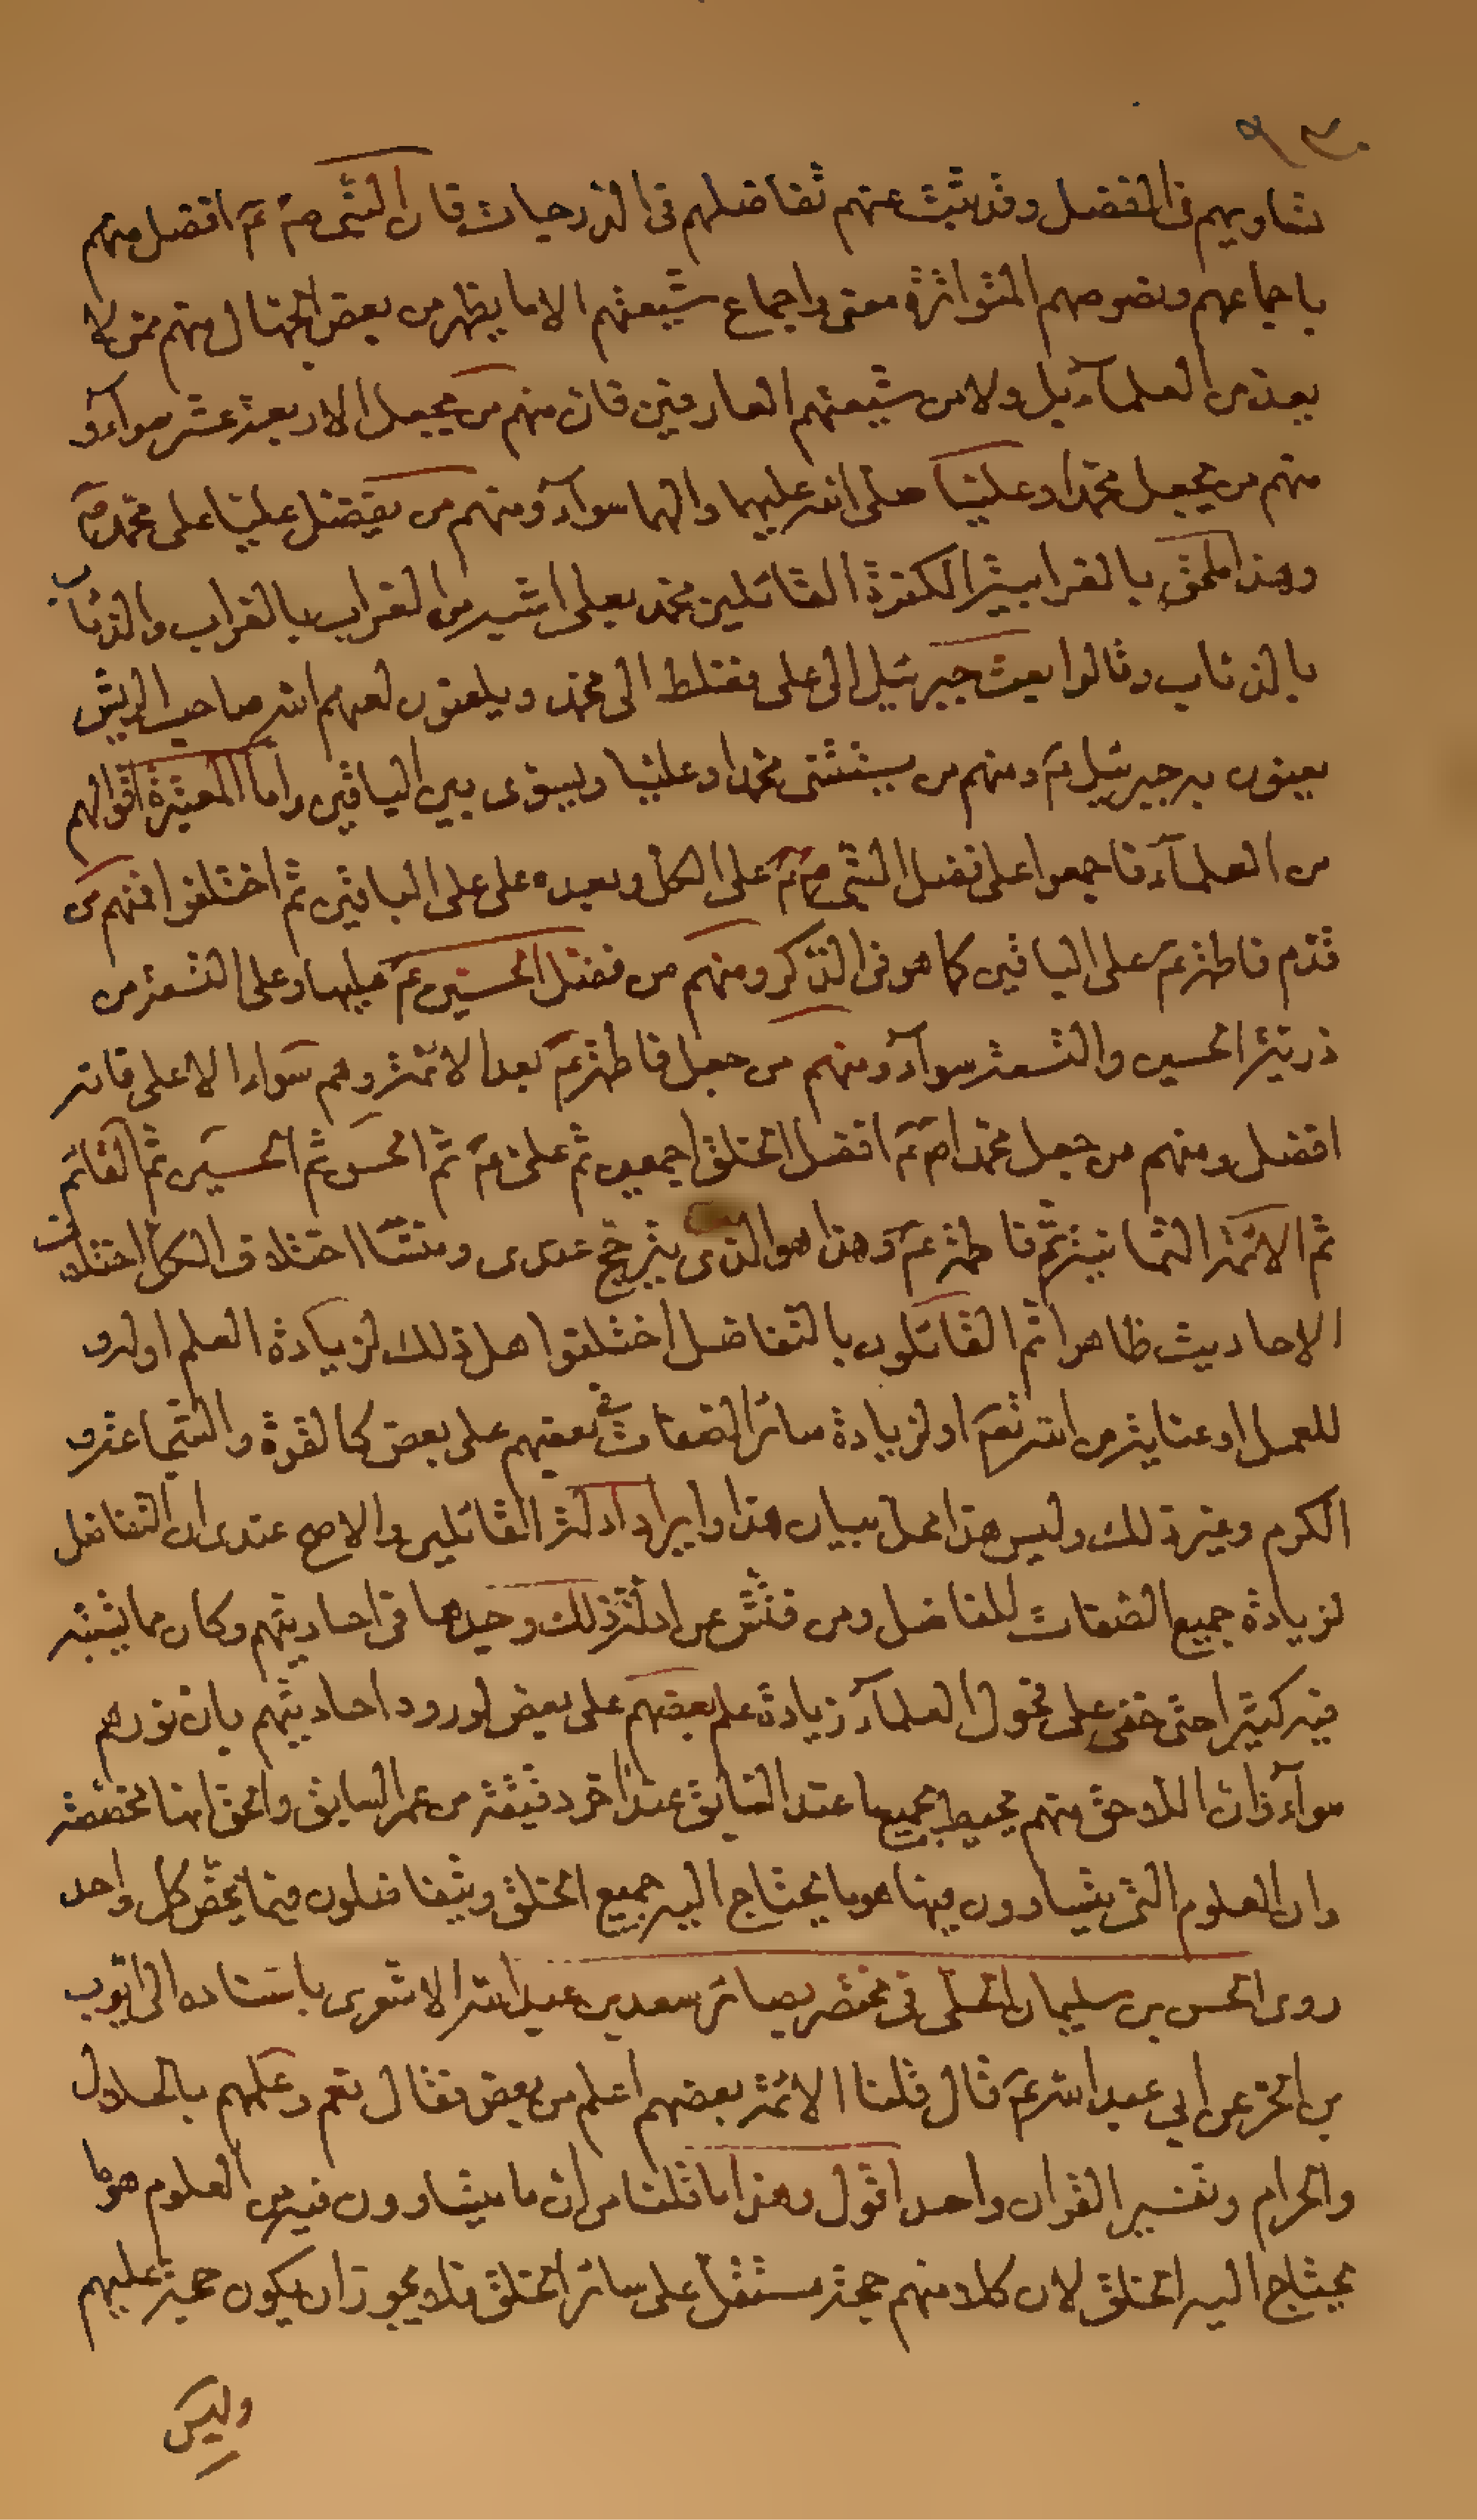 تساويهم فى الفضل وقد ثبث عنهم تفاضلهم فى الدرجات فان النبى صم عم افضل منهم
باجماعهم ونصوصهم المتواترة معنى واجماع شيعتهم الا ما يظهر من بعض الجهال منهم ممن لا
يعد من العلمآء بل ولا من شيعتهم العارفين فان منهم من يجعل الاربعة عشر سوآء و
منهم من يجعل محمدا وعليا صلى الله عليهما والهما سوآء ومنهم من يفضل عليا على محمد صم
وهذا ملحق بالغرابية الكفرة القائلين محمد بعلى اشبه من الغراب بالغراب والذباب
بالذباب وقالوا بعث جبرئيل الى على فغلط الى محمد ويلعنون لعنهم الله صاحب الريش
يعنون به جبرئيل عم ومنهم من يستثنى محمدا وعليا ويسوى بين الباقين واما المعتبرة اقوالهم
من العلمآء فاجمعوا على فضل النبى صم عم على الكل وبعده على على الباقين ثم اختلفوا فمنهم من
قدم فاطمة عم على الباقين كما هو فى الذكر ومنهم من فضل الحسنين عم عليها وعلى التسعة من
ذرية الحسين والتسعة سوآء ومنهم من جعل فاطمة عم بعد الائمة وهم سواء الا على فانه
افضل ومنهم من جعل محمدا صم عم افضل الخلق اجمعين ثم على عم ثم الحسن ثم الحسين ثم القائم
ثم الائمة الثمانية ثم فاطمة عم وهذا هو الذى يترجح عندى ومنشأ اختلاف الكل اختلاف
الاحاديث ظاهرا ثم القائلون بالتفاضل اختلفوا هل ذلك لزيادة العلم او له و
للعمل او عناية من الله تعم او لزيادة سائر الصفات فى بعضهم على بعض كالقوة والشجاعة و
الكرم وغير ذلك وليس هذا محل بيان هذا وايراد ادلة القائلين والاصح عندى ان التفاضل
لزيادة جميع الصفات للفاضل ومن فتش عن ادلة ذلك وجدها فى احاديثهم وكان مما يشتبه
فيه كثيرا حتى خفى على فحول العلمآء زيادة علم بعضهم على بعض لورود احاديثهم بان نورهم
سوآء وان اللاحق منهم يحيط بجميع ما عند السابق عند اخر دقيقة من عمر السابق والحق انها مخصصة
وان العلوم التى يتساوون فيها هو ما يحتاج اليه جميع الخلق ويتفاضلون فيما يخص كل واحد
روى الحسن بن سليمان الحلى فى مختصر بصائر سعد بن عبد الله الاشعرى باسناده الى ايوب
بن الحر عن ابى عبد الله عم قال قلنا الائمة بعضهم اعلم من بعض فقال نعم وعلمهم بالحلال
والحرام وتفسير القران واحد اقول وهذا ما قلنا من ان ما يتساوون فيه من العلوم هو ما
يحتاج اليه الخلق لان كلا منهم حجة مستقل على سائر الخلق فلا يجوز ان يكون حجة عليهم
وليس